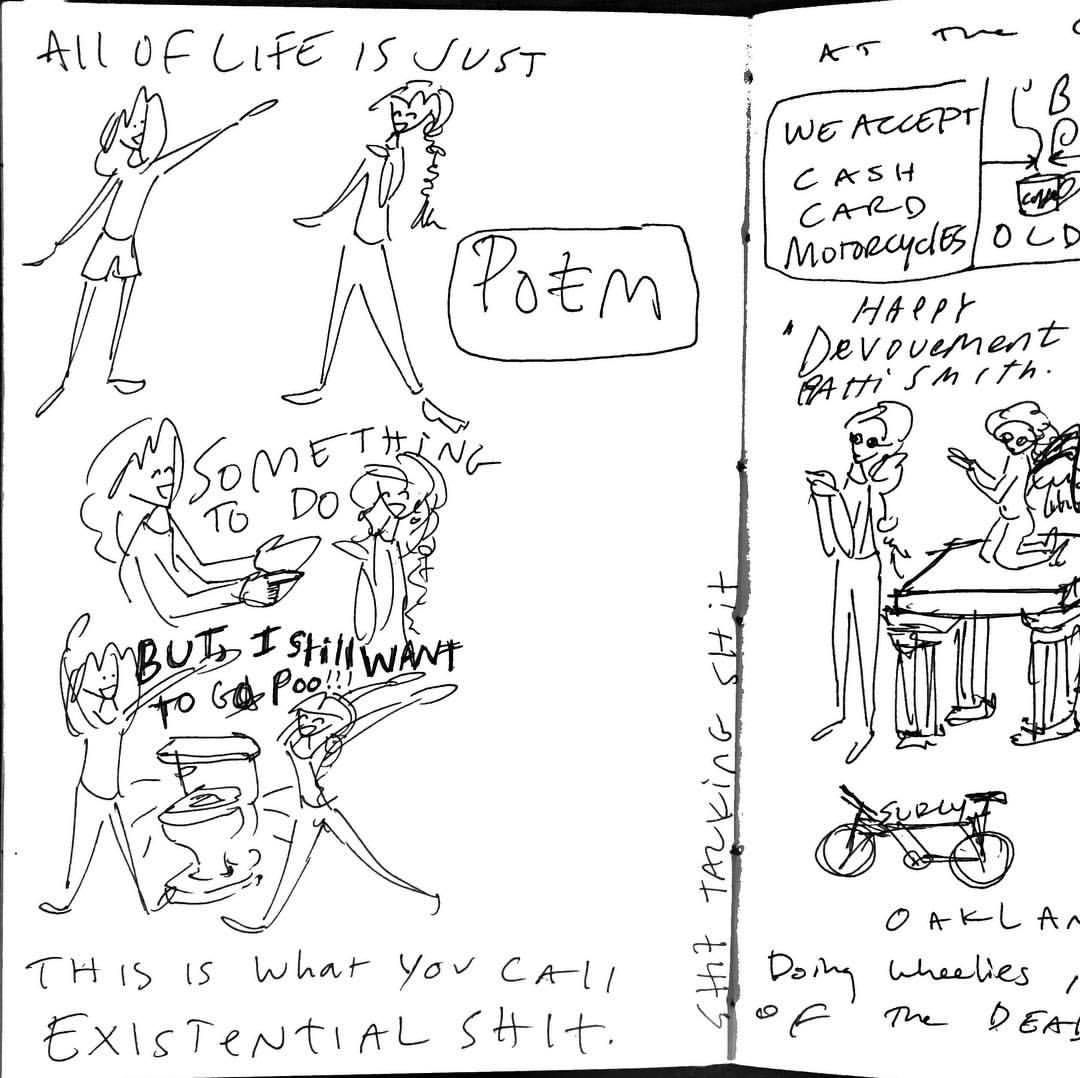 ALL OF LIFE IS JUST
POEM
SOMETHING
TO DO
BUT, I Still WANT
TO GO POO!!!
THIS IS what YOU CALL
EXISTENTIAL SHIT.
SHIT TALKING SHIT
AT THE
WE ACCEPT
CASH
CARD
MOTORCYCLES
B
COFFEE
OLD
HAPPY
"Devouement
PAtti SMITH.
SURLY
OAKLAN
Doing wheelies,
OF THE DEA